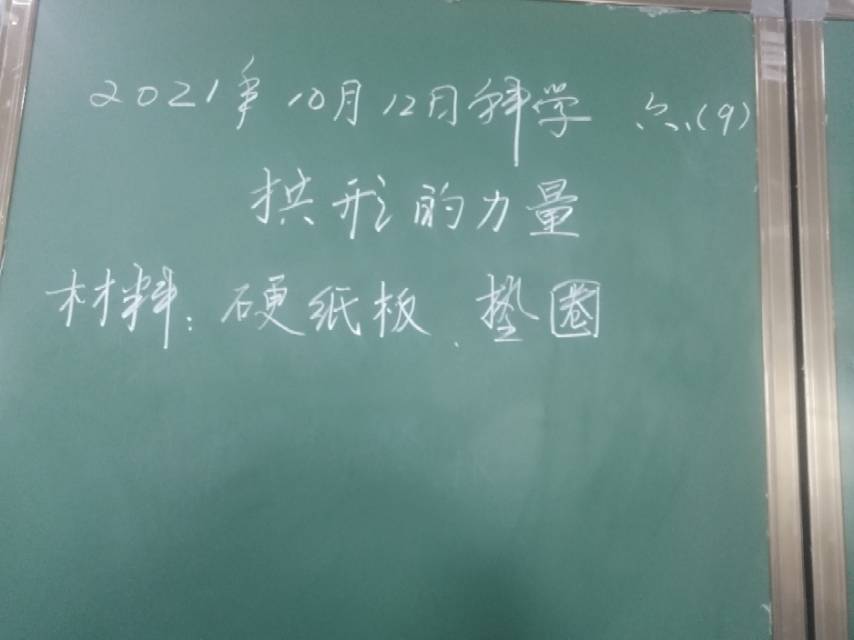 2021年10月12日科学 六(9)
拱形的力量
材料:硬纸板、垫圈